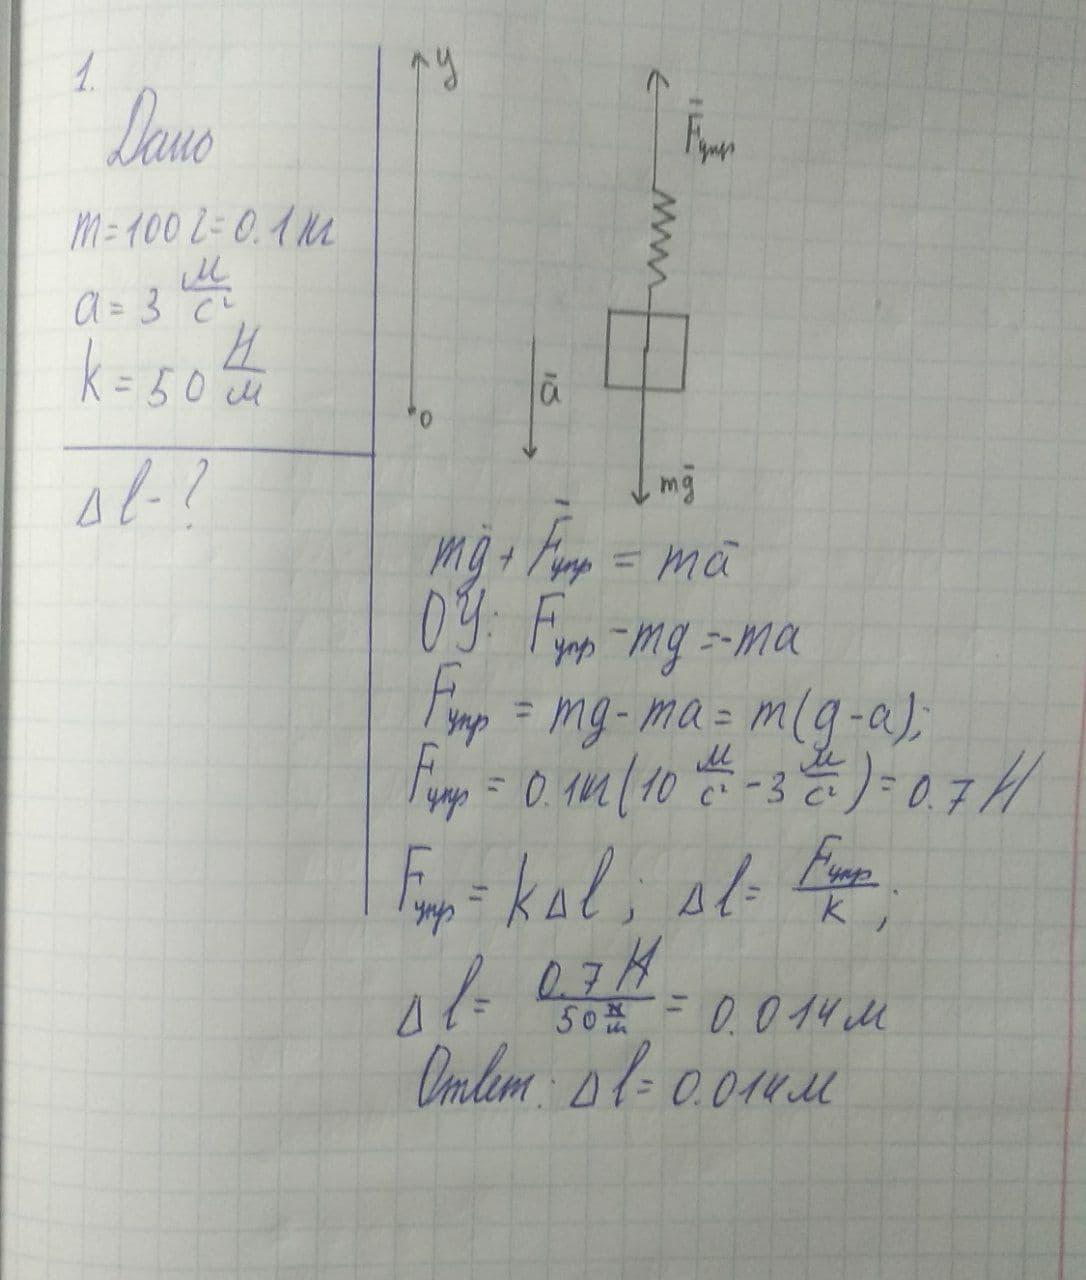 1.
Дано
m=100г=0.1кг
a=3 м/с²
k=50 Н/м
Δl-?
y
F̄упр
ā
0
mḡ
mḡ+F̄упр=mā
OY: Fупр-mg=-ma
Fупр=mg-ma=m(g-a);
Fупр=0.1кг(10 м/с²-3 м/с²)=0.7Н
Fупр=kΔl; Δl=Fупр/k;
Δl=0.7Н/50 Н/м=0.014м
Ответ: Δl=0.014м